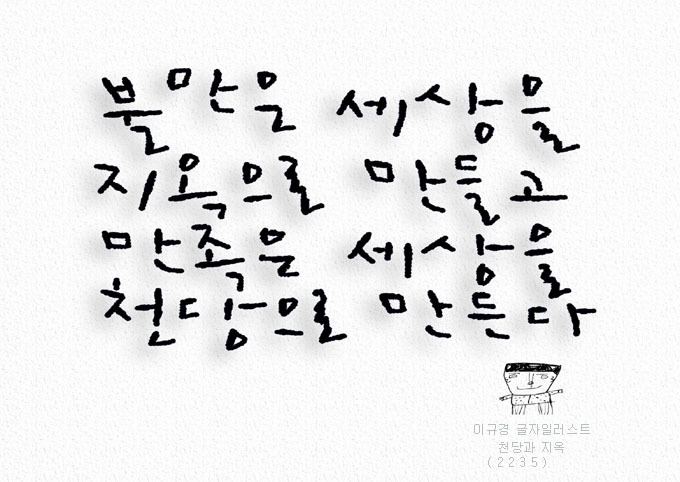 불만은 세상을
지옥으로 만들고
만족은 세상을
천당으로 만든다
이규경 글자일러스트
천당과 지옥
(2235)